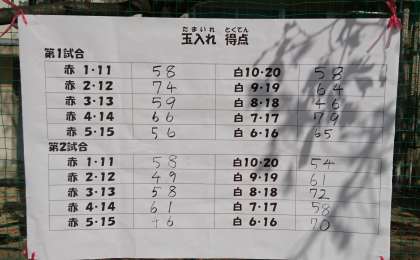 たまいれ とくてん
玉入れ 得点
第1試合
赤 1・11 58 白10・20 58
赤 2・12 74 白 9・19 64
赤 3・13 59 白 8・18 46
赤 4・14 66 白 7・17 79
赤 5・15 56 白 6・16 65
第2試合
赤 1・11 58 白10・20 54
赤 2・12 49 白 9・19 61
赤 3・13 58 白 8・18 72
赤 4・14 61 白 7・17 58
赤 5・15 白 6・16 70